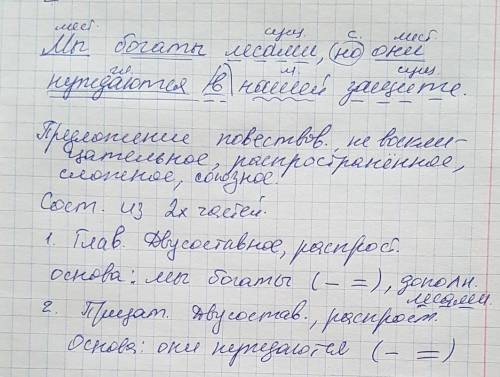 мест. сущ. с. мест.
Мы богаты лесами, но они
гл. м. сущ.
нуждаются в нашей защите.
Предложение повествов., не воскли-
цательное, распространённое,
сложное, союзное.
Сост. из 2х частей.
1. Глав. Двусоставное, распрост.
основа: мы богаты (– =), дополн.
лесами.
2. Придат. Двусостав., распрост.
Основа: они нуждаются (– =)